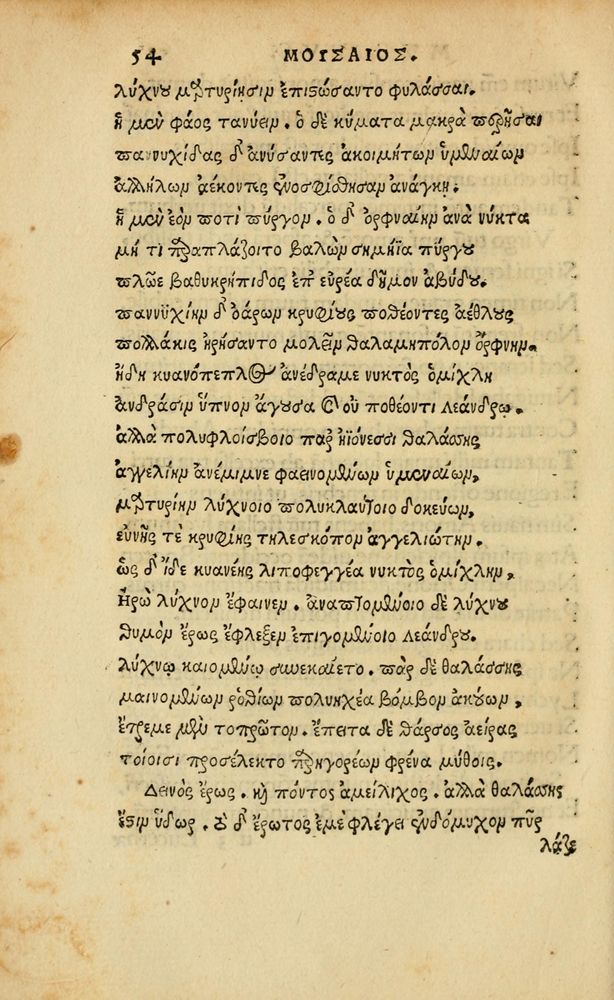 54 ΜΟΥΣΑΙΟΣ.
λύχνου μαρτυρίησιν ἐπιστώσαντο φυλάσσαι.
ἡ μὲν φάος τανύειν. ὁ δὲ κύματα μακρὰ περῆσαι
παννυχίδας δ' ἀνύσαντες ἀκοιμήτων ὑμεναίων
ἀλλήλων ἀέκοντες ἐνοσφίσθησαν ἀνάγκῃ.
ἡ μὲν ἑὸν ποτὶ πύργον. ὁ δ' ὀρφναίην ἀνὰ νύκτα
μή τι παραπλάζοιτο βαλὼν σημήϊα πύργου
πλῶε βαθυκρήπιδος ἐπ' εὐρέα δῆμον ἀβύδου.
παννυχίων δ' ὀάρων κρυφίους ποθέοντες ἀέθλους
πολλάκις ἠρήσαντο μολεῖν θαλαμηπόλον ὄρφνην.
ἤδη κυανόπεπλος ἀνέδραμε νυκτὸς ὁμίχλη
ἀνδράσιν ὕπνον ἄγουσα καὶ οὐ ποθέοντι λεάνδρῳ.
ἀλλὰ πολυφλοίσβοιο παρ' ἠϊόνεσσι θαλάσσης
ἀγγελίην ἀνέμιμνε φαεινομένων ὑμεναίων,
μαρτυρίην λύχνοιο πολυκλαύτοιο δοκεύων,
εὐνῆς τὲ κρυφίης τηλεσκόπον ἀγγελιώτην.
ὡς δ' ἴδε κυανέης λιποφεγγέα νυκτὸς ὁμίχλην,
Ἡρὼ λύχνον ἔφαινεν. ἀναπτομένοιο δὲ λύχνου
θυμὸν ἔρως ἔφλεξεν ἐπειγομένοιο λεάνδρου.
λύχνῳ καιομένῳ συνεκαίετο. πὰρ δὲ θαλάσσης
μαινομένων ῥοθίων πολυηχέα βόμβον ἀκούων,
ἔτρεμε μὲν τοπρῶτον. ἔπειτα δὲ θάρσος ἀείρας
τοίοισι προσέλεκτο παρηγορέων φρένα μύθοις.
Δεινὸς ἔρως. καὶ πόντος ἀμείλιχος. ἀλλὰ θαλάσσης
ἔστιν ὕδωρ. τὸ δ' ἔρωτος ἐμὲ φλέγει ἐνδόμυχον πῦρ
λάζε